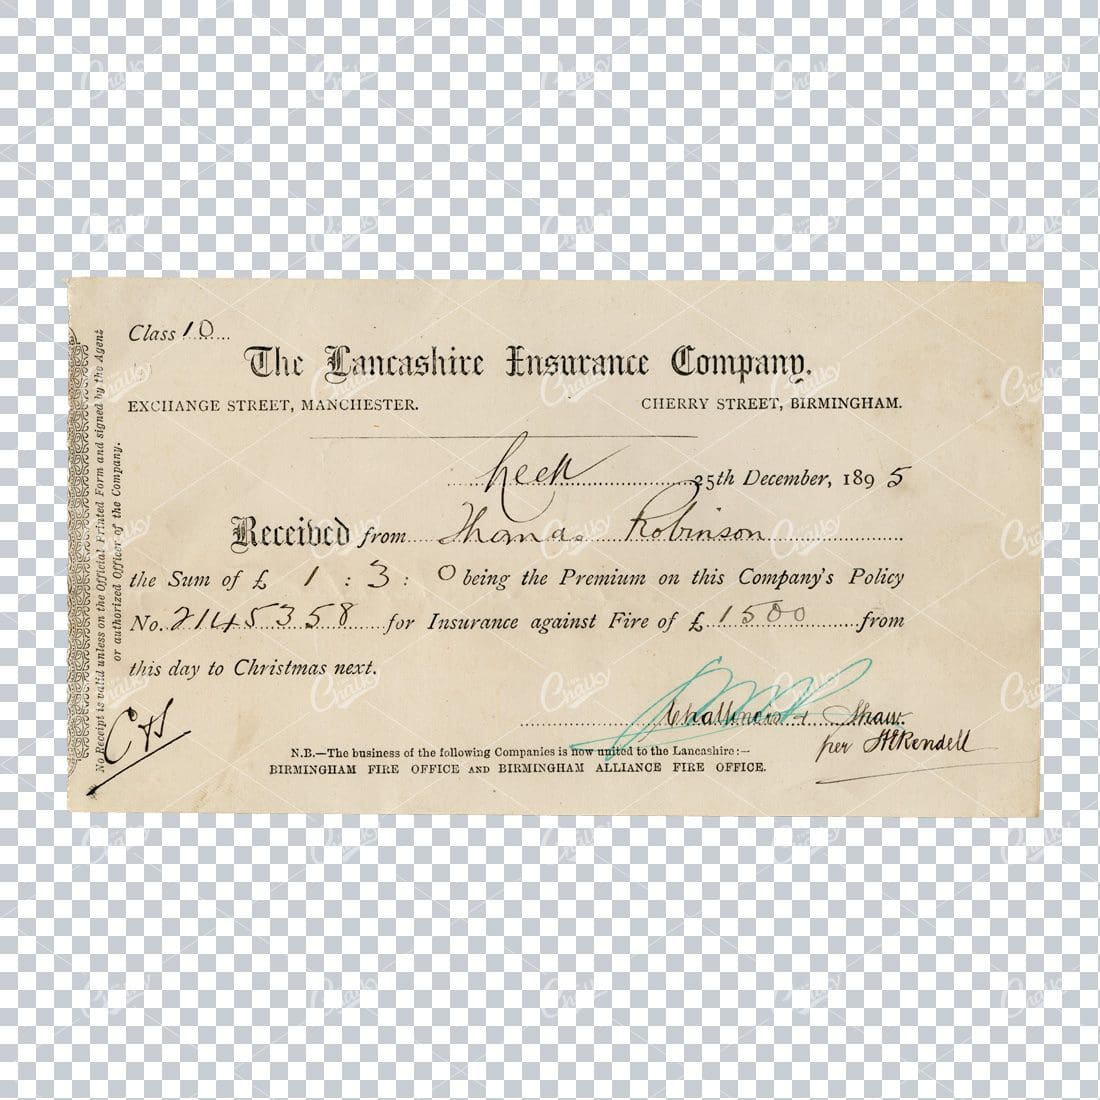 Class 10
The Lancashire Insurance Company.
EXCHANGE STREET, MANCHESTER. CHERRY STREET, BIRMINGHAM.
Leek 25th December, 1895
Received from Thomas Robinson
the Sum of £ 1 : 3 : 0 being the Premium on this Company's Policy
No. 2145358 for Insurance against Fire of £ 1500 from
this day to Christmas next.
Challinors & Shaw.
per
C&S
N.B.—The business of the following Companies is now united to the Lancashire:—
BIRMINGHAM FIRE OFFICE AND BIRMINGHAM ALLIANCE FIRE OFFICE.
No Receipt is valid unless on the Official Printed Form and signed by the Agent
or authorized Officer of the Company.
Chalky